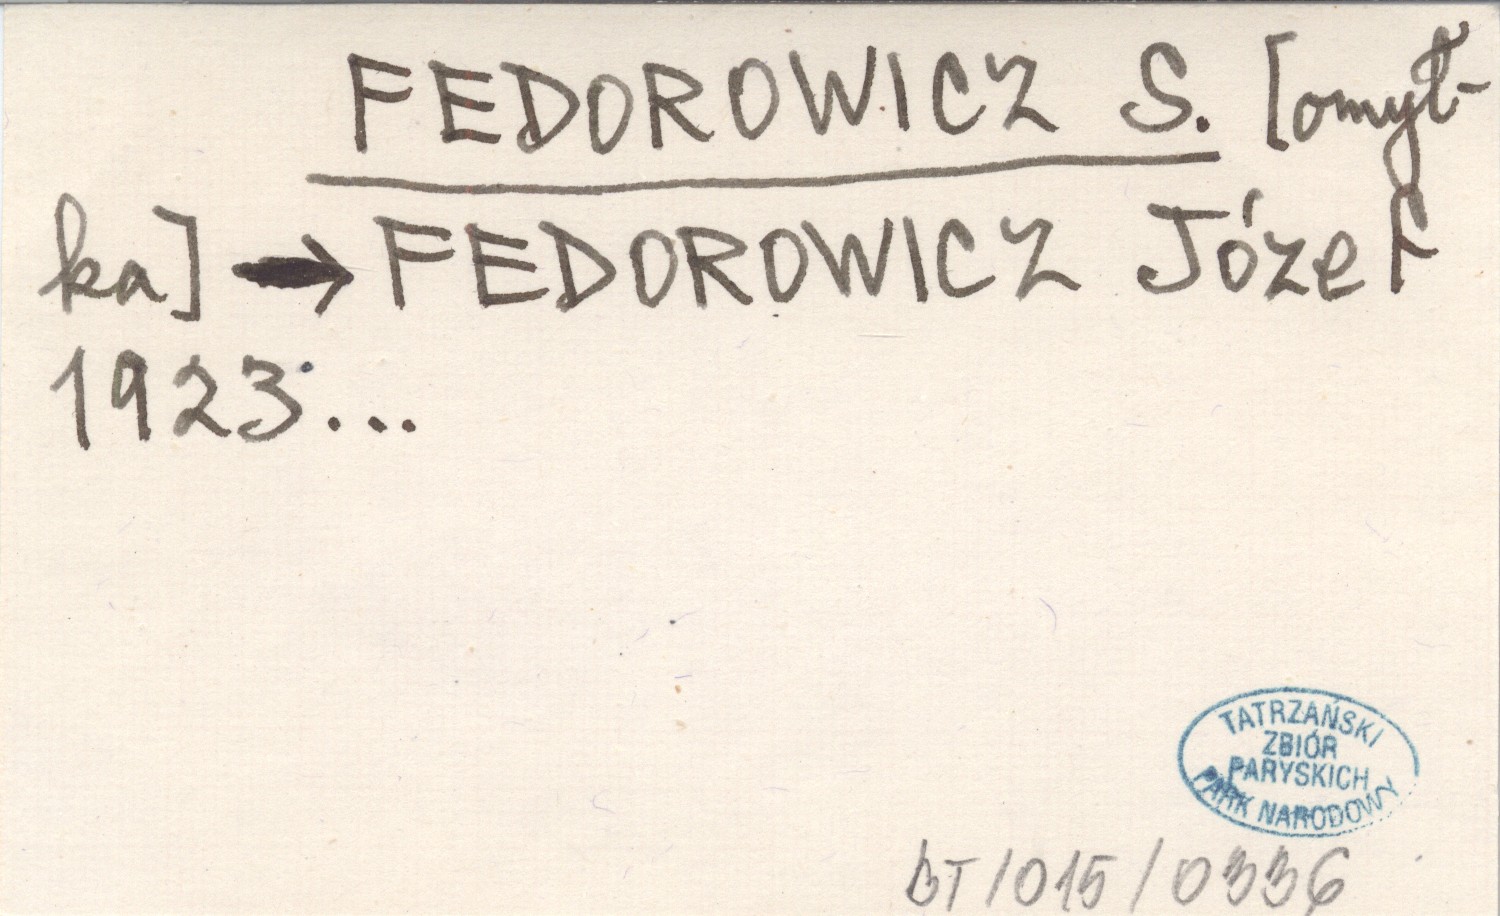 FEDOROWICZ S. [omył-
ka] → FEDOROWICZ Józef
1923...
TATRZAŃSKI
ZBIÓR
PARYSKICH
PARK NARODOWY
BT/015/0336